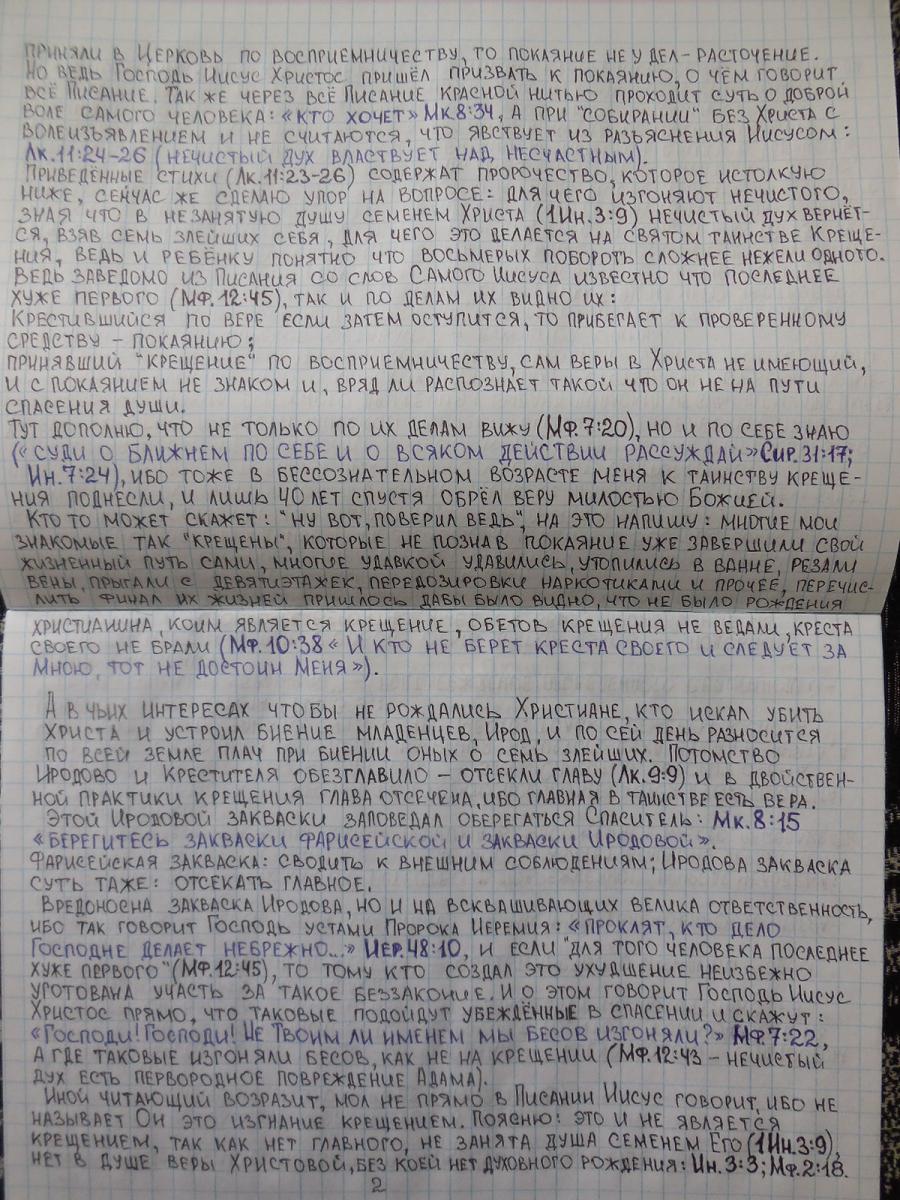 приняли в Церковь по восприемничеству, то покаяние не у дел - расточение.
Но ведь Господь Иисус Христос пришёл призвать к покаянию, о чём говорит
всё Писание. Так же через всё Писание красной нитью проходит суть о доброй
воле самого человека: «кто хочет» Мк.8:34, а при "собирании" без Христа с
волеизъявлением и не считаются, что явствует из разъяснения Иисусом:
Лк.11:24-26 (нечистый дух властвует над несчастным).
Приведённые стихи (Лк.11:23-26) содержат пророчество, которое истолкую
ниже, сейчас же сделаю упор на вопросе: для чего изгоняют нечистого,
зная что в незанятую душу семенем Христа (1Ин.3:9) нечистый дух вернёт-
ся, взяв семь злейших себя, для чего это делается на святом таинстве Креще-
ния, ведь и ребёнку понятно что восьмерых побороть сложнее нежели одного.
Ведь заведомо из Писания со слов Самого Иисуса известно что последнее
хуже первого (Мф.12:45), так и по делам их видно их:
Крестившийся по вере если затем оступится, то прибегает к проверенному
средству - покаянию;
принявший "крещение" по восприемничеству, сам веры в Христа не имеющий,
и с покаянием не знаком и, вряд ли распознает такой что он не на пути
спасения души.
Тут дополню, что не только по их делам вижу (Мф.7:20), но и по себе знаю
(«Суди о ближнем по себе и о всяком действии рассуждай» Сир.31:17;
Ин.7:24), ибо тоже в бессознательном возрасте меня к таинству креще-
ния поднесли, и лишь 40 лет спустя обрёл веру милостью Божией.
Кто то может скажет: "ну вот, поверил ведь", на это напишу: многие мои
знакомые так "крещены", которые не познав покаяние уже завершили свой
жизненный путь сами, многие удавкой удавились, утопились в ванне, резали
вены, прыгали с девятиэтажек, передозировки наркотиками и прочее, перечис-
лить финал их жизней пришлось дабы было видно, что не было рождения
христианина, коим является крещение, обетов крещения не ведали, креста
своего не брали (Мф.10:38 «И кто не берет креста своего и следует за
Мною, тот не достоин Меня»).
А в чьих интересах чтобы не рождались Христиане, кто искал убить
Христа и устроил биение младенцев, Ирод, и по сей день разносится
по всей земле плач при биении оных о семь злейших. Потомство
Иродово и Крестителя обезглавило - отсекли главу (Лк.9:9) и в двойствен-
ной практики крещения глава отсечена, ибо главная в таинстве есть вера.
Этой Иродовой закваски заповедал оберегаться Спаситель: Мк.8:15
«берегитесь закваски фарисейской и закваски Иродовой».
Фарисейская закваска: сводить к внешним соблюдениям; Иродова закваска
суть таже: отсекать главное.
Вредоносна закваска Иродова, но и на всквашивающих велика ответственность,
ибо так говорит Господь устами Пророка Иеремия: «Проклят, кто дело
Господне делает небрежно...» Иер.48:10, и если "для того человека последнее
хуже первого" (Мф.12:45), то тому кто создал это ухудшение неизбежно
уготована участь за такое беззаконие. И о этом говорит Господь Иисус
Христос прямо, что таковые подойдут убеждённые в спасении и скажут:
«Господи! Господи! Не Твоим ли именем мы бесов изгоняли?» Мф.7:22,
а где таковые изгоняли бесов, как не на крещении (Мф.12:43 - нечистый
дух есть первородное повреждение Адама).
Иной читающий возразит, мол не прямо в Писании Иисус говорит, ибо не
называет Он это изгнание крещением. Поясню: это и не является
крещением, так как нет главного, не занята душа семенем Его (1Ин.3:9),
нет в душе веры Христовой, без коей нет духовного рождения: Ин.3:3; Мф.2:18.
2